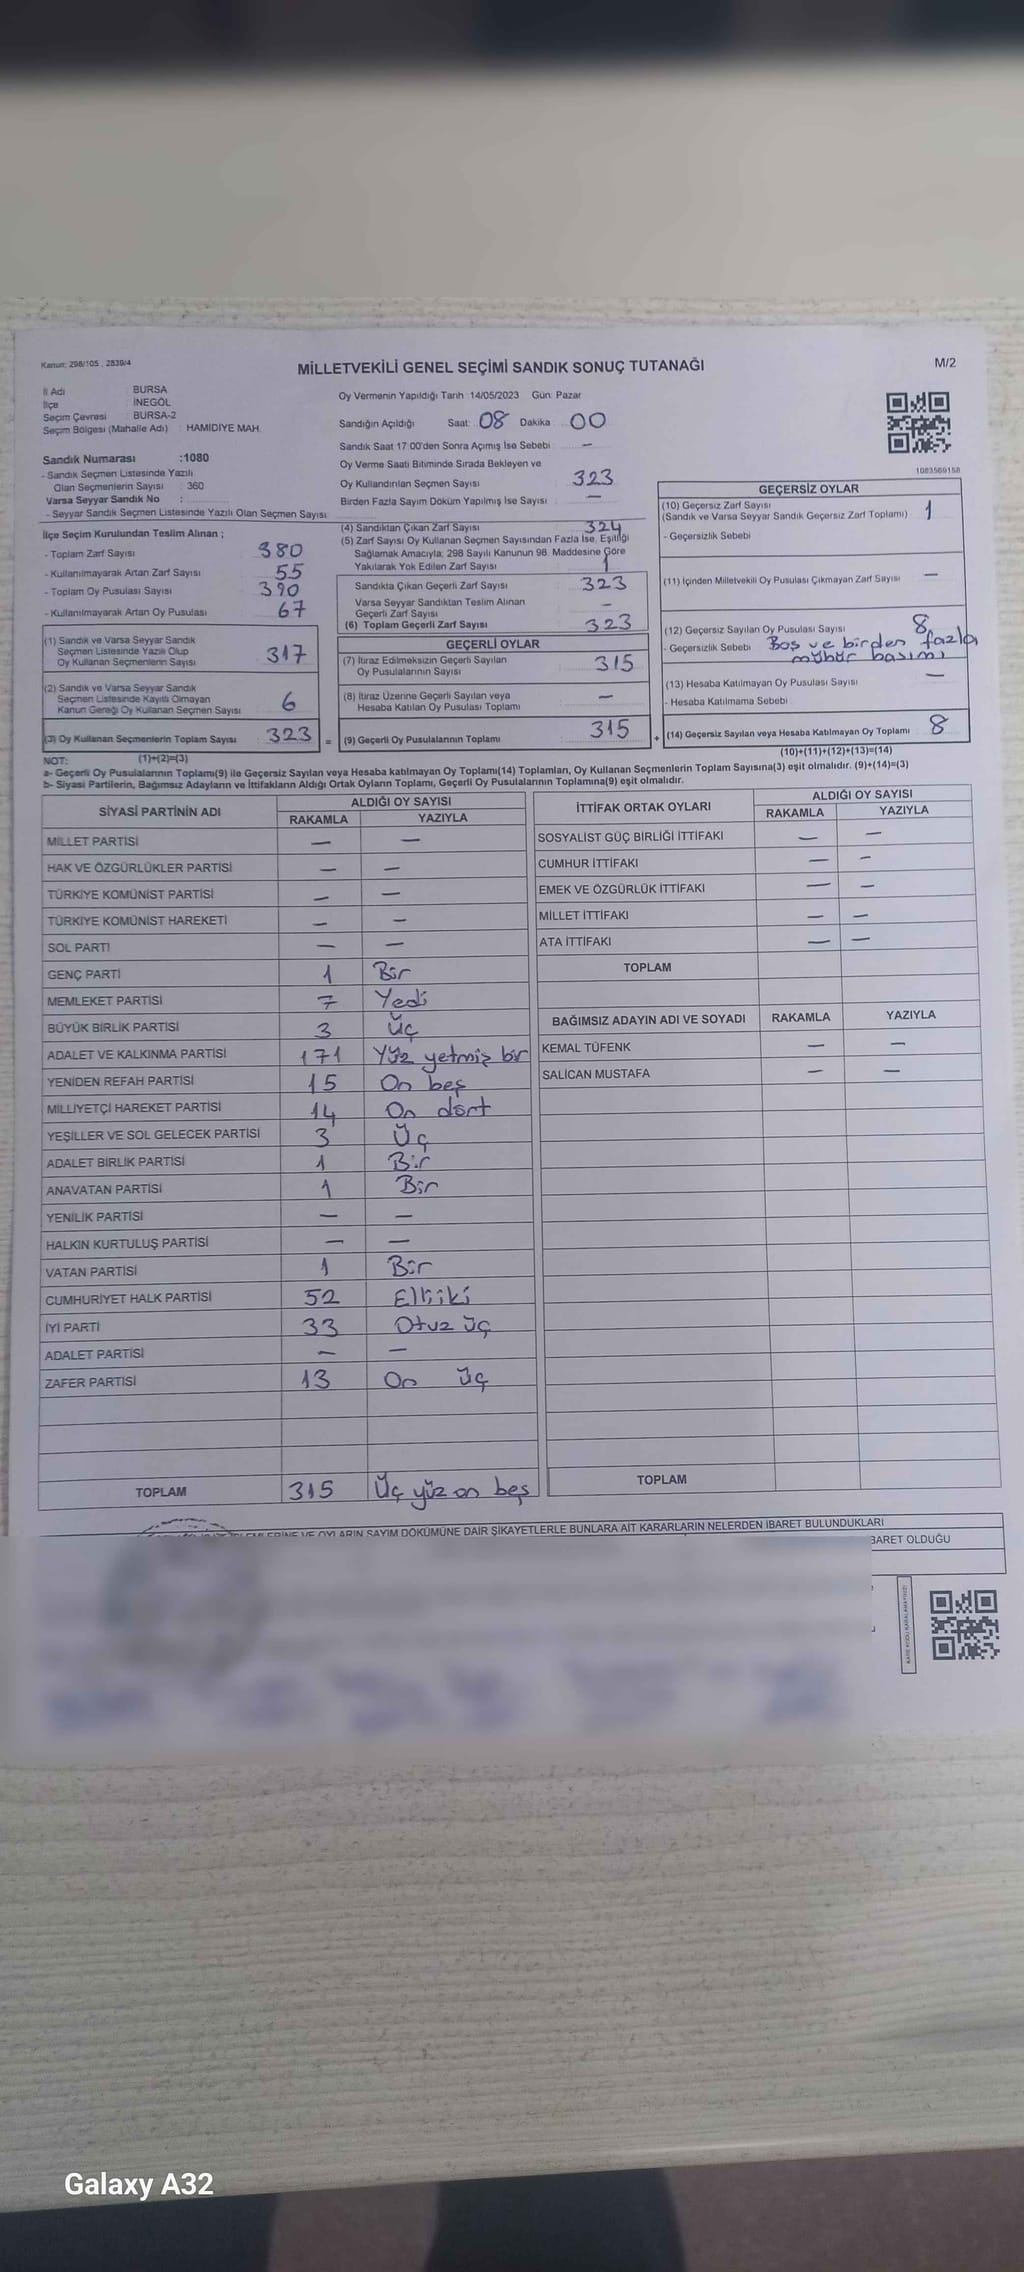 Kanun: 298/105 , 2839/4
MİLLETVEKİLİ GENEL SEÇİMİ SANDIK SONUÇ TUTANAĞI
M/2
İl Adı : BURSA
İlçe : İNEGÖL
Seçim Çevresi : BURSA-2
Seçim Bölgesi (Mahalle Adı) : HAMİDİYE MAH.
Sandık Numarası :1080
- Sandık Seçmen Listesinde Yazılı
Olan Seçmenlerin Sayısı : 360
Varsa Seyyar Sandık No :
- Seyyar Sandık Seçmen Listesinde Yazılı Olan Seçmen Sayısı
Oy Vermenin Yapıldığı Tarih :14/05/2023 Gün: Pazar
Sandığın Açıldığı Saat: 08 Dakika 00
Sandık Saat 17:00'den Sonra Açılmış İse Sebebi : —
Oy Verme Saati Bitiminde Sırada Bekleyen ve
Oy Kullandırılan Seçmen Sayısı : 323
Birden Fazla Sayım Döküm Yapılmış İse Sayısı : —
1083569158
İlçe Seçim Kurulundan Teslim Alınan ;
- Toplam Zarf Sayısı 380
- Kullanılmayarak Artan Zarf Sayısı 55
- Toplam Oy Pusulası Sayısı 390
- Kullanılmayarak Artan Oy Pusulası 67
(1) Sandık ve Varsa Seyyar Sandık
Seçmen Listesinde Yazılı Olup
Oy Kullanan Seçmenlerin Sayısı 317
(2) Sandık ve Varsa Seyyar Sandık
Seçmen Listesinde Kayıtlı Olmayan
Kanun Gereği Oy Kullanan Seçmen Sayısı 6
(3) Oy Kullanan Seçmenlerin Toplam Sayısı 323 =
(4) Sandıktan Çıkan Zarf Sayısı : 324
(5) Zarf Sayısı Oy Kullanan Seçmen Sayısından Fazla İse, Eşitliği
Sağlamak Amacıyla; 298 Sayılı Kanunun 98. Maddesine Göre
Yakılarak Yok Edilen Zarf Sayısı : 1
Sandıkta Çıkan Geçerli Zarf Sayısı : 323
Varsa Seyyar Sandıktan Teslim Alınan
Geçerli Zarf Sayısı : —
(6) Toplam Geçerli Zarf Sayısı : 323
GEÇERLİ OYLAR
(7) İtiraz Edilmeksizin Geçerli Sayılan
Oy Pusulalarının Sayısı : 315
(8) İtiraz Üzerine Geçerli Sayılan veya
Hesaba Katılan Oy Pusulası Toplamı : —
(9) Geçerli Oy Pusulalarının Toplamı : 315 +
GEÇERSİZ OYLAR
(10) Geçersiz Zarf Sayısı
(Sandık ve Varsa Seyyar Sandık Geçersiz Zarf Toplamı) : 1
- Geçersizlik Sebebi
(11) İçinden Milletvekili Oy Pusulası Çıkmayan Zarf Sayısı : —
(12) Geçersiz Sayılan Oy Pusulası Sayısı : 8
- Geçersizlik Sebebi Boş ve birden fazla
mühür basımı
(13) Hesaba Katılmayan Oy Pusulası Sayısı : —
- Hesaba Katılmama Sebebi
(14) Geçersiz Sayılan veya Hesaba Katılmayan Oy Toplamı : 8
NOT: (1)+(2)=(3)
(10)+(11)+(12)+(13)=(14)
a- Geçerli Oy Pusulalarının Toplamı(9) ile Geçersiz Sayılan veya Hesaba katılmayan Oy Toplamı(14) Toplamları, Oy Kullanan Seçmenlerin Toplam Sayısına(3) eşit olmalıdır. (9)+(14)=(3)
b- Siyasi Partilerin, Bağımsız Adayların ve İttifakların Aldığı Ortak Oyların Toplamı, Geçerli Oy Pusulalarının Toplamına(9) eşit olmalıdır.
SİYASİ PARTİNİN ADI ALDIĞI OY SAYISI
RAKAMLA YAZIYLA
MİLLET PARTİSİ — —
HAK VE ÖZGÜRLÜKLER PARTİSİ — —
TÜRKİYE KOMÜNİST PARTİSİ — —
TÜRKİYE KOMÜNİST HAREKETİ — —
SOL PARTİ — —
GENÇ PARTİ 1 Bir
MEMLEKET PARTİSİ 7 Yedi
BÜYÜK BİRLİK PARTİSİ 3 Üç
ADALET VE KALKINMA PARTİSİ 171 Yüz yetmiş bir
YENİDEN REFAH PARTİSİ 15 On beş
MİLLİYETÇİ HAREKET PARTİSİ 14 On dört
YEŞİLLER VE SOL GELECEK PARTİSİ 3 Üç
ADALET BİRLİK PARTİSİ 1 Bir
ANAVATAN PARTİSİ 1 Bir
YENİLİK PARTİSİ — —
HALKIN KURTULUŞ PARTİSİ — —
VATAN PARTİSİ 1 Bir
CUMHURİYET HALK PARTİSİ 52 Elliiki
İYİ PARTİ 33 Otuz üç
ADALET PARTİSİ — —
ZAFER PARTİSİ 13 On üç
TOPLAM 315 Üç yüz on beş
İTTİFAK ORTAK OYLARI ALDIĞI OY SAYISI
RAKAMLA YAZIYLA
SOSYALİST GÜÇ BİRLİĞİ İTTİFAKI — —
CUMHUR İTTİFAKI — —
EMEK VE ÖZGÜRLÜK İTTİFAKI — —
MİLLET İTTİFAKI — —
ATA İTTİFAKI — —
TOPLAM
BAĞIMSIZ ADAYIN ADI VE SOYADI RAKAMLA YAZIYLA
KEMAL TÜFENK — —
SALİCAN MUSTAFA — —
TOPLAM
OYLARIN SAYIM DÖKÜMÜNE DAİR ŞİKAYETLERLE BUNLARA AİT KARARLARIN NELERDEN İBARET BULUNDUKLARI
İBARET OLDUĞU
KARE KODU KARALAMAYINIZ!
Galaxy A32